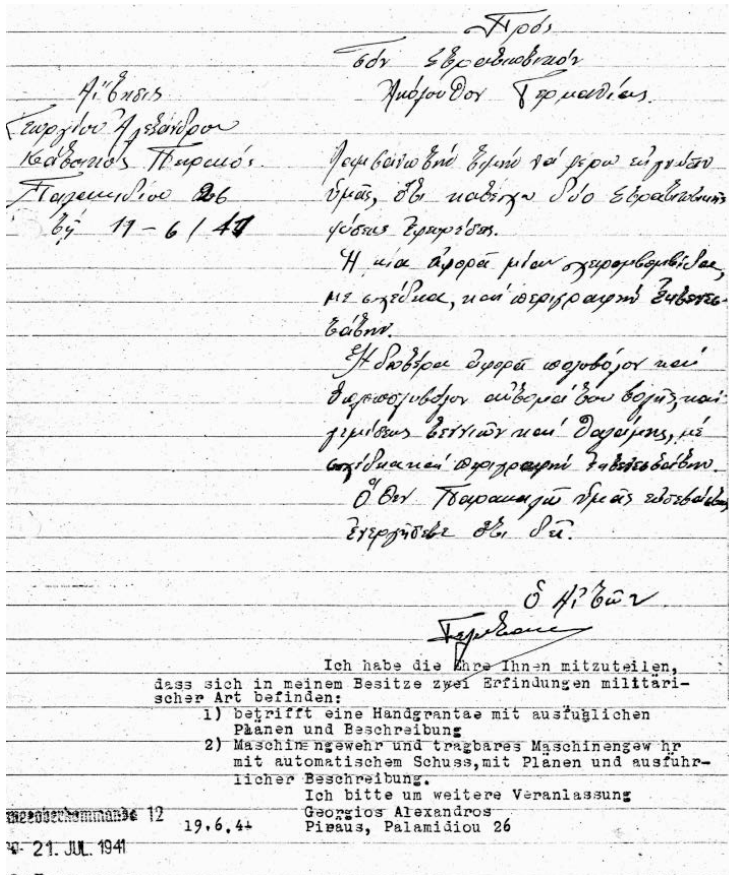 Πρός
τόν Στρατιωτικόν
Ἀκόλουθον Γερμανίας.
Αἴτησις
Γεωργίου Ἀλεξάνδρου
Κάτοικος Πειραιῶς
Παλαμιδίου 26
τῇ 19-6/41
Λαμβάνω τήν τιμήν νά φέρω εἰς γνῶσιν
ὑμᾶς, ὅτι κατέχω δύο Στρατιωτικῆς
φύσεως Ἐφευρέσεις.
Ἡ μία ἀφορᾶ μίαν χειροβομβίδα,
με σχέδια, καί περιγραφήν
Ἡ δευτέρα ἀφορᾶ πολυβόλον καί
αὐτομάτου βολῆς, καί
γεμίσεως καί θαλάμης, μέ
σχέδια καί περιγραφήν
Ὅθεν Παρακαλῶ ὑμᾶς
ἐνεργήσετε ὅτι δεῖ.
ὁ Αἰτῶν
Ich habe die Ehre Ihnen mitzuteilen,
dass sich in meinem Besitze zwei Erfindungen militäri-
scher Art befinden:
1) betrifft eine Handgrantae mit ausfuhlichen
Plänen und Beschreibung
2) Maschinengewehr und tragbares Maschinengew hr
mit automatischem Schuss,mit Plänen und ausführ-
licher Beschreibung.
Ich bitte um weitere Veranlassung
Georgios Alexandros
19.6.41 Piraus, Palamidiou 26
12
21. JUL. 1941